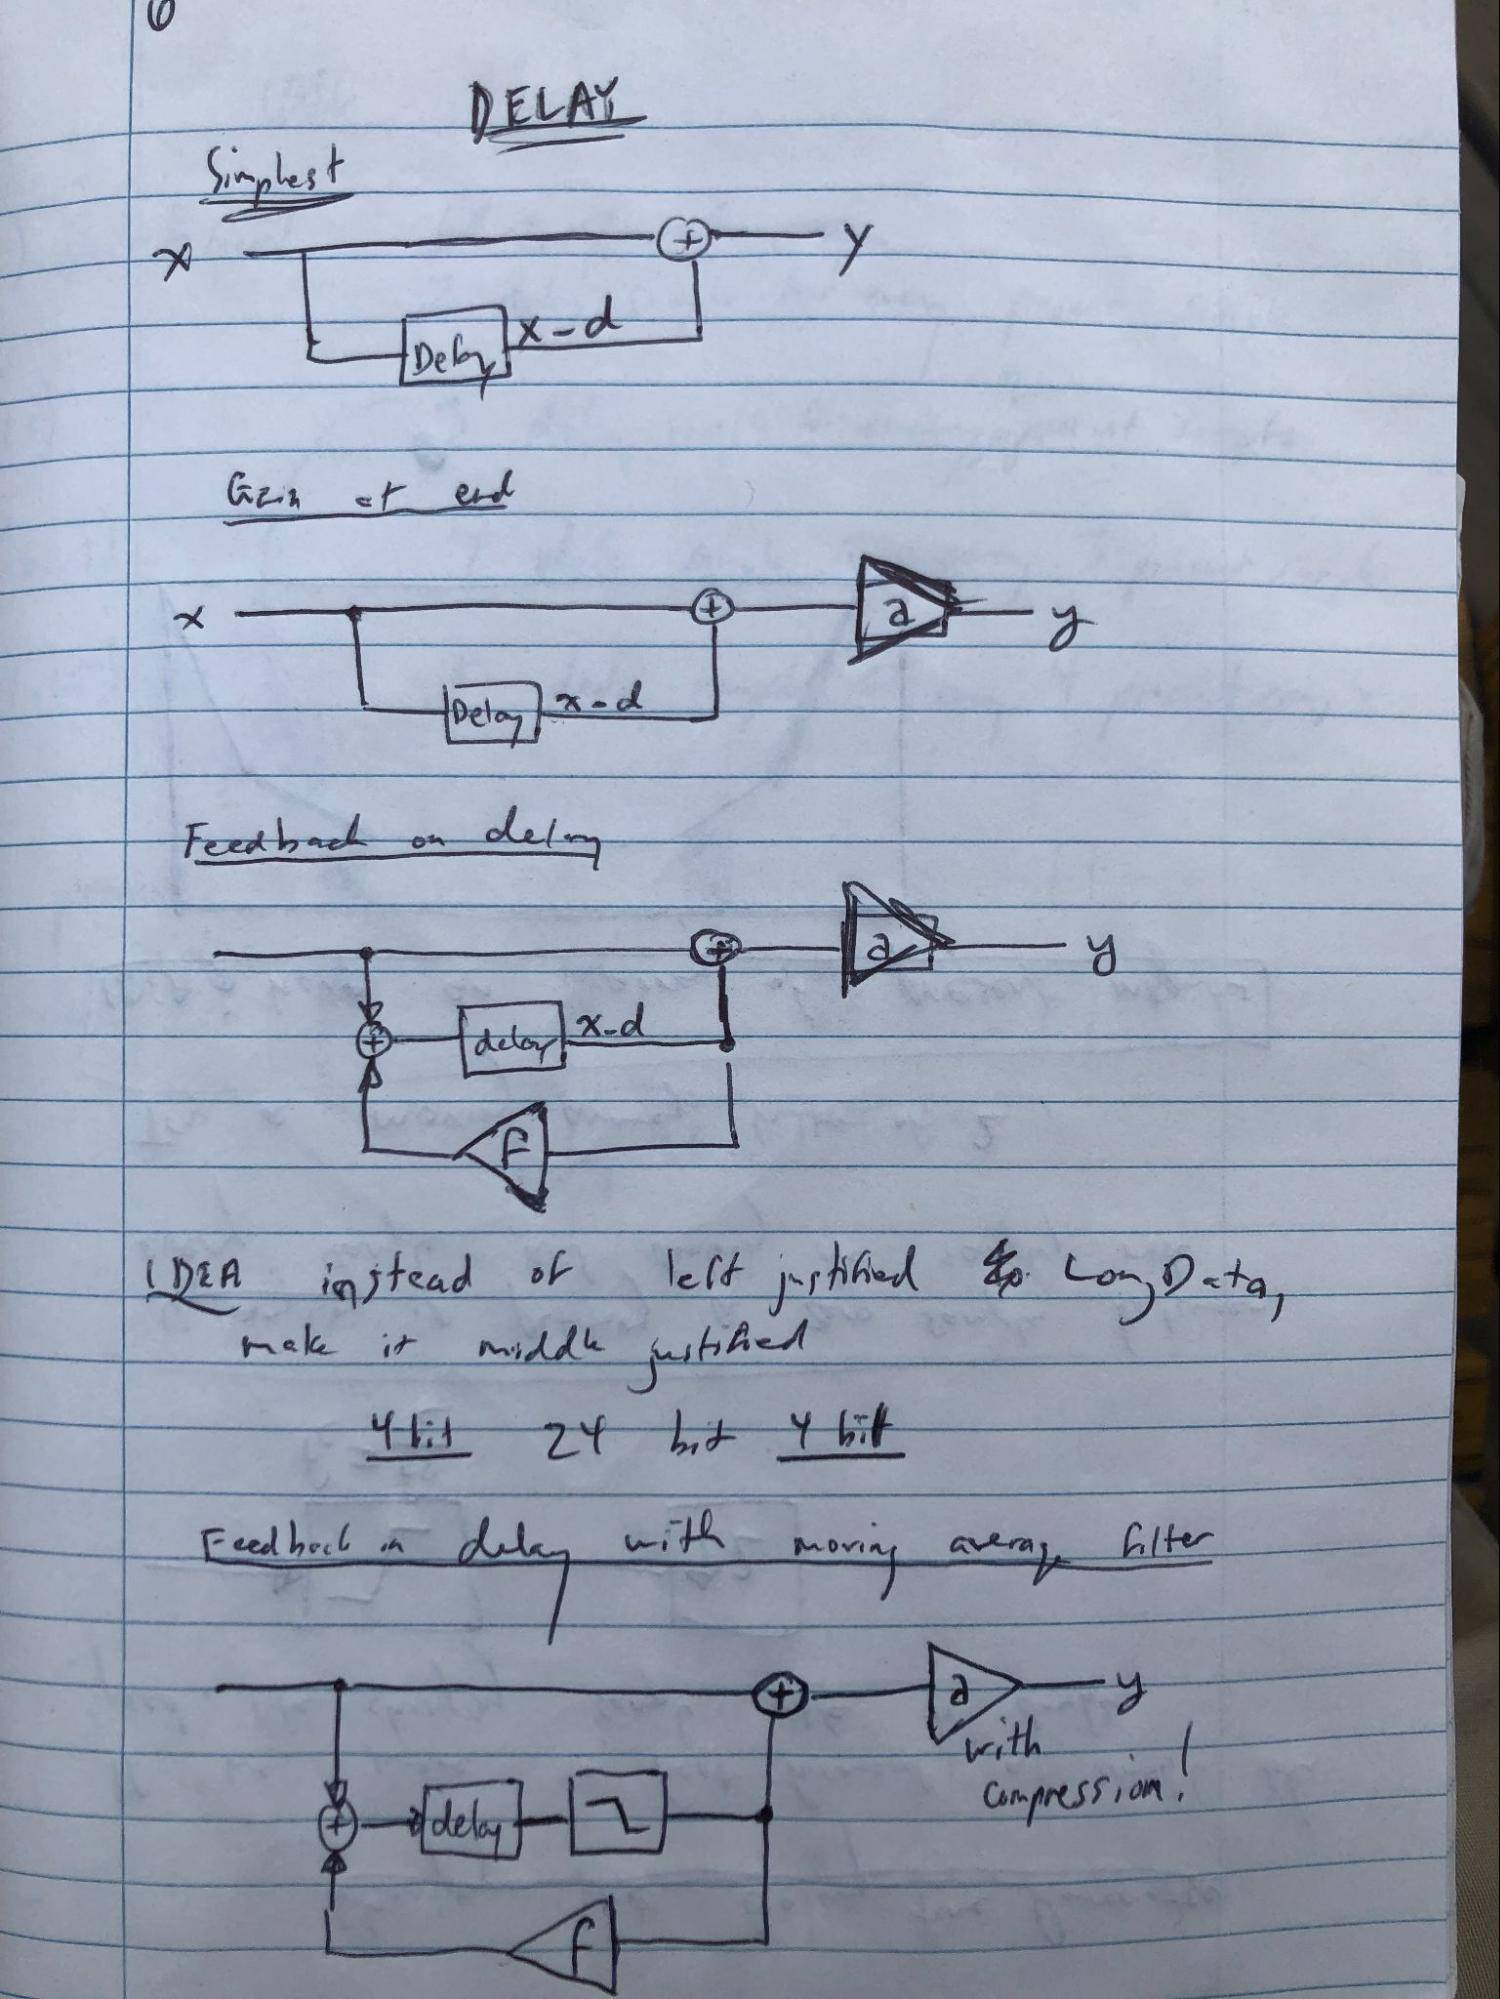 6
DELAY
Simplest
x + y
Delay x-d
Gain at end
x + a y
Delay x-d
Feedback on delay
+ a y
+ delay x-d
f
IDEA instead of left justified LongData,
make it middle justified
4 bit 24 bit 4 bit
Feedback in delay with moving average filter
+ a y
with
compression!
+ delay
f